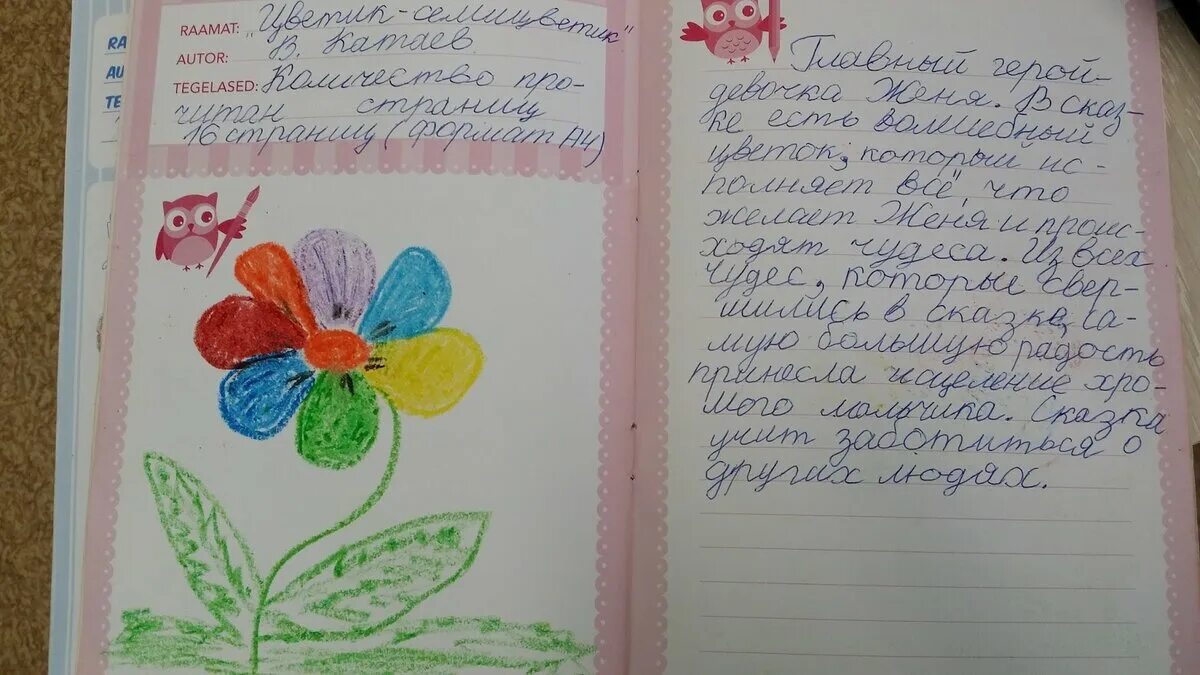 RA
AU
TE
RAAMAT: „Цветик-семицветик"
AUTOR: В. Катаев
TEGELASED: Количество про-
читан страниц
16 страниц (формат А4)
Главный герой-
девочка Женя. В сказ-
ке есть волшебный
цветок, который ис-
полняет всё, что
желает Женя и проис-
ходят чудеса. Из всех
чудес, которые свер-
шились в сказке, са-
мую большую радость
принесла исцеление хро-
мого мальчика. Сказка
учит заботиться о
других людях.